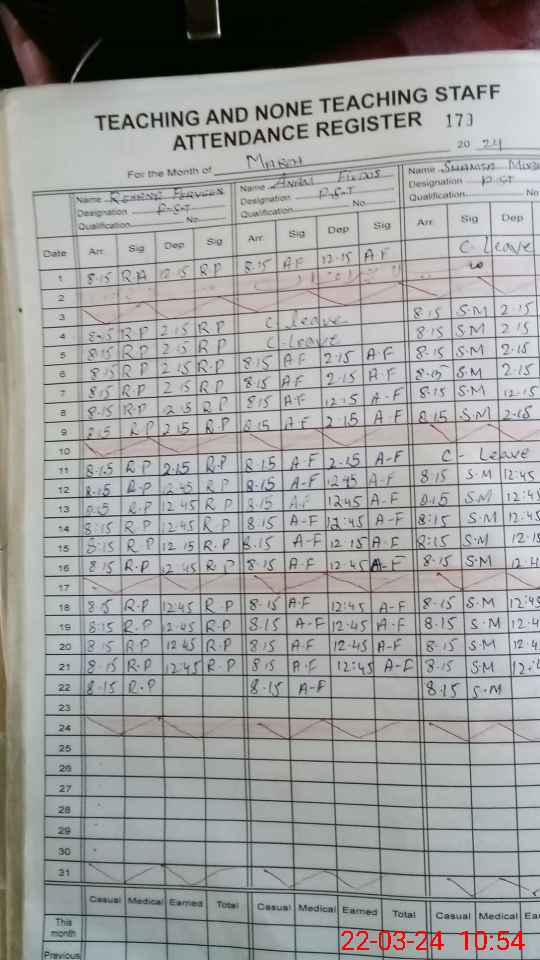 TEACHING AND NONE TEACHING STAFF
ATTENDANCE REGISTER 173
For the Month of March 2024
Name Name Name
Designation P.S.T Designation P.S.T Designation P.ST
Qualification No Qualification No Qualification No
Date Arr. Sig Dep Sig Arr. Sig Dep Sig Arr. Sig Dep
1 8.15 R.A 12.15 R.P 8.15 A.F 12.15 A.F C. Leave
2
3
4 8.15 R.P 2.15 R.P C-leave 8.15 S.M 2.15
5 8.15 R.P 2.15 R.P C-leave 8.15 S.M 2.15
6 8.15 R.P 2.15 R.P 8.15 A.F 2.15 A.F 8.15 S.M 2.15
7 8.15 R.P 2.15 R.P 8.15 A.F 2.15 A.F 8.15 S.M 2.15
8 8.15 R.P 12.15 R.P 8.15 A.F 12.15 A.F 8.15 S.M 12.15
9 8.15 R.P 2.15 R.P 8.15 A.F 2.15 A.F 8.15 S.M 2.15
10
11 8.15 R.P 2.15 R.P 8.15 A-F 2.15 A-F C- Leave
12 8.15 R.P 12.45 R.P 8.15 A-F 12.45 A-F 8.15 S.M 12:45
13 8.15 R.P 12.45 R.P 8.15 A.F 12.45 A-F 8.15 S.M 12:45
14 8:15 R.P 12.45 R.P 8.15 A-F 12:45 A-F 8:15 S.M 12:45
15 8:15 R.P 12.15 R.P 8.15 A-F 12.15 A.F 8:15 S.M 12.15
16 8.15 R.P 12.45 R.P 8.15 A.F 12.45 A-F 8.15 S.M
17
18 8.15 R.P 12.45 R.P 8.15 A.F 12:45 A-F 8.15 S.M 12:45
19 8.15 R.P 12.45 R.P 8.15 A.F 12.45 A.F 8.15 S.M
20 8.15 R.P 12.45 R.P 8.15 A.F 12.45 A-F 8.15 S.M
21 8.15 R.P 12.45 R.P 8.15 A.F 12:45 A-F 8.15 S.M
22 8.15 R.P 8.15 A-F 8.15 S.M
23
24
25
26
27
28
29
30
31
Casual Medical Earned Total Casual Medical Earned Total Casual Medical
This
month
Previous
22-03-24 10:54